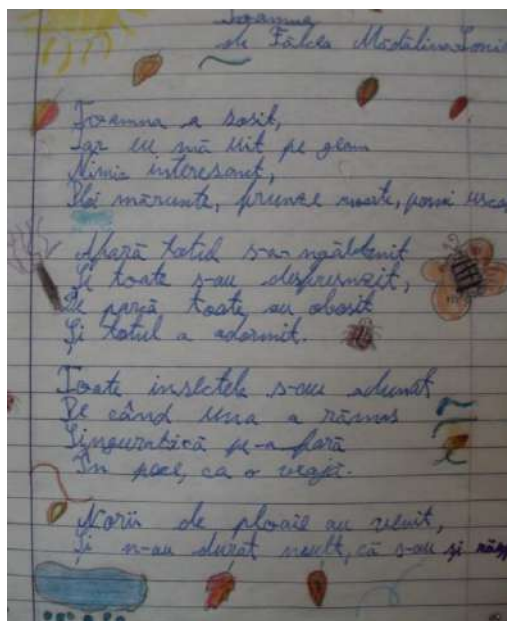 Toamna
de Fâlcea Mădălina Ioni
Toamna a sosit,
Iar eu mă uit pe geam
Nimic interesant,
Ploi mărunte, frunze moarte, pomi usca
Afară totul s-a ngălbenit
Și toate s-au desfrunzit,
De parcă toate au obosit
Și totul a adormit.
Toate insectele s-au adunat
De când una a rămas
Singuratică pe-a fară
În ca o vrajă.
Norii de ploaie au venit,
Și n-au durat mult, că s-au și